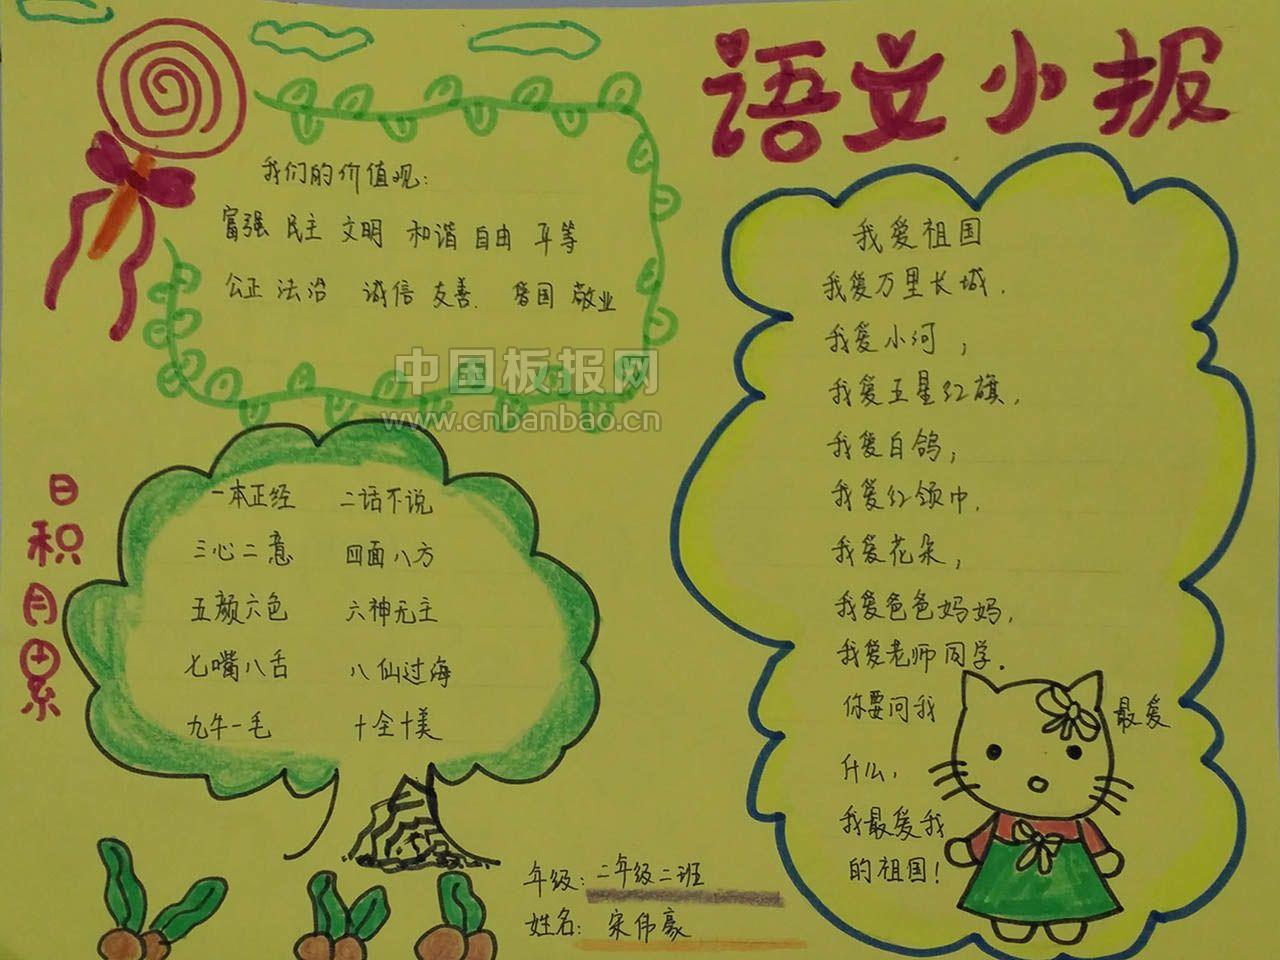 语文小报
我们的价值观:
富强 民主 文明 和谐 自由 平等
公正 法治 诚信 友善. 爱国 敬业
中国板报网
www.cnbanbao.cn
日积月累
一本正经 二话不说
三心二意 四面八方
五颜六色 六神无主
七嘴八舌 八仙过海
九牛一毛 十全十美
我爱祖国
我爱万里长城.
我爱小河;
我爱五星红旗,
我爱白鸽;
我爱红领巾.
我爱花朵,
我爱爸爸妈妈,
我爱老师同学.
你要问我 最爱
什么,
我最爱我
的祖国!
年级:二年级二班
姓名:宋伟豪